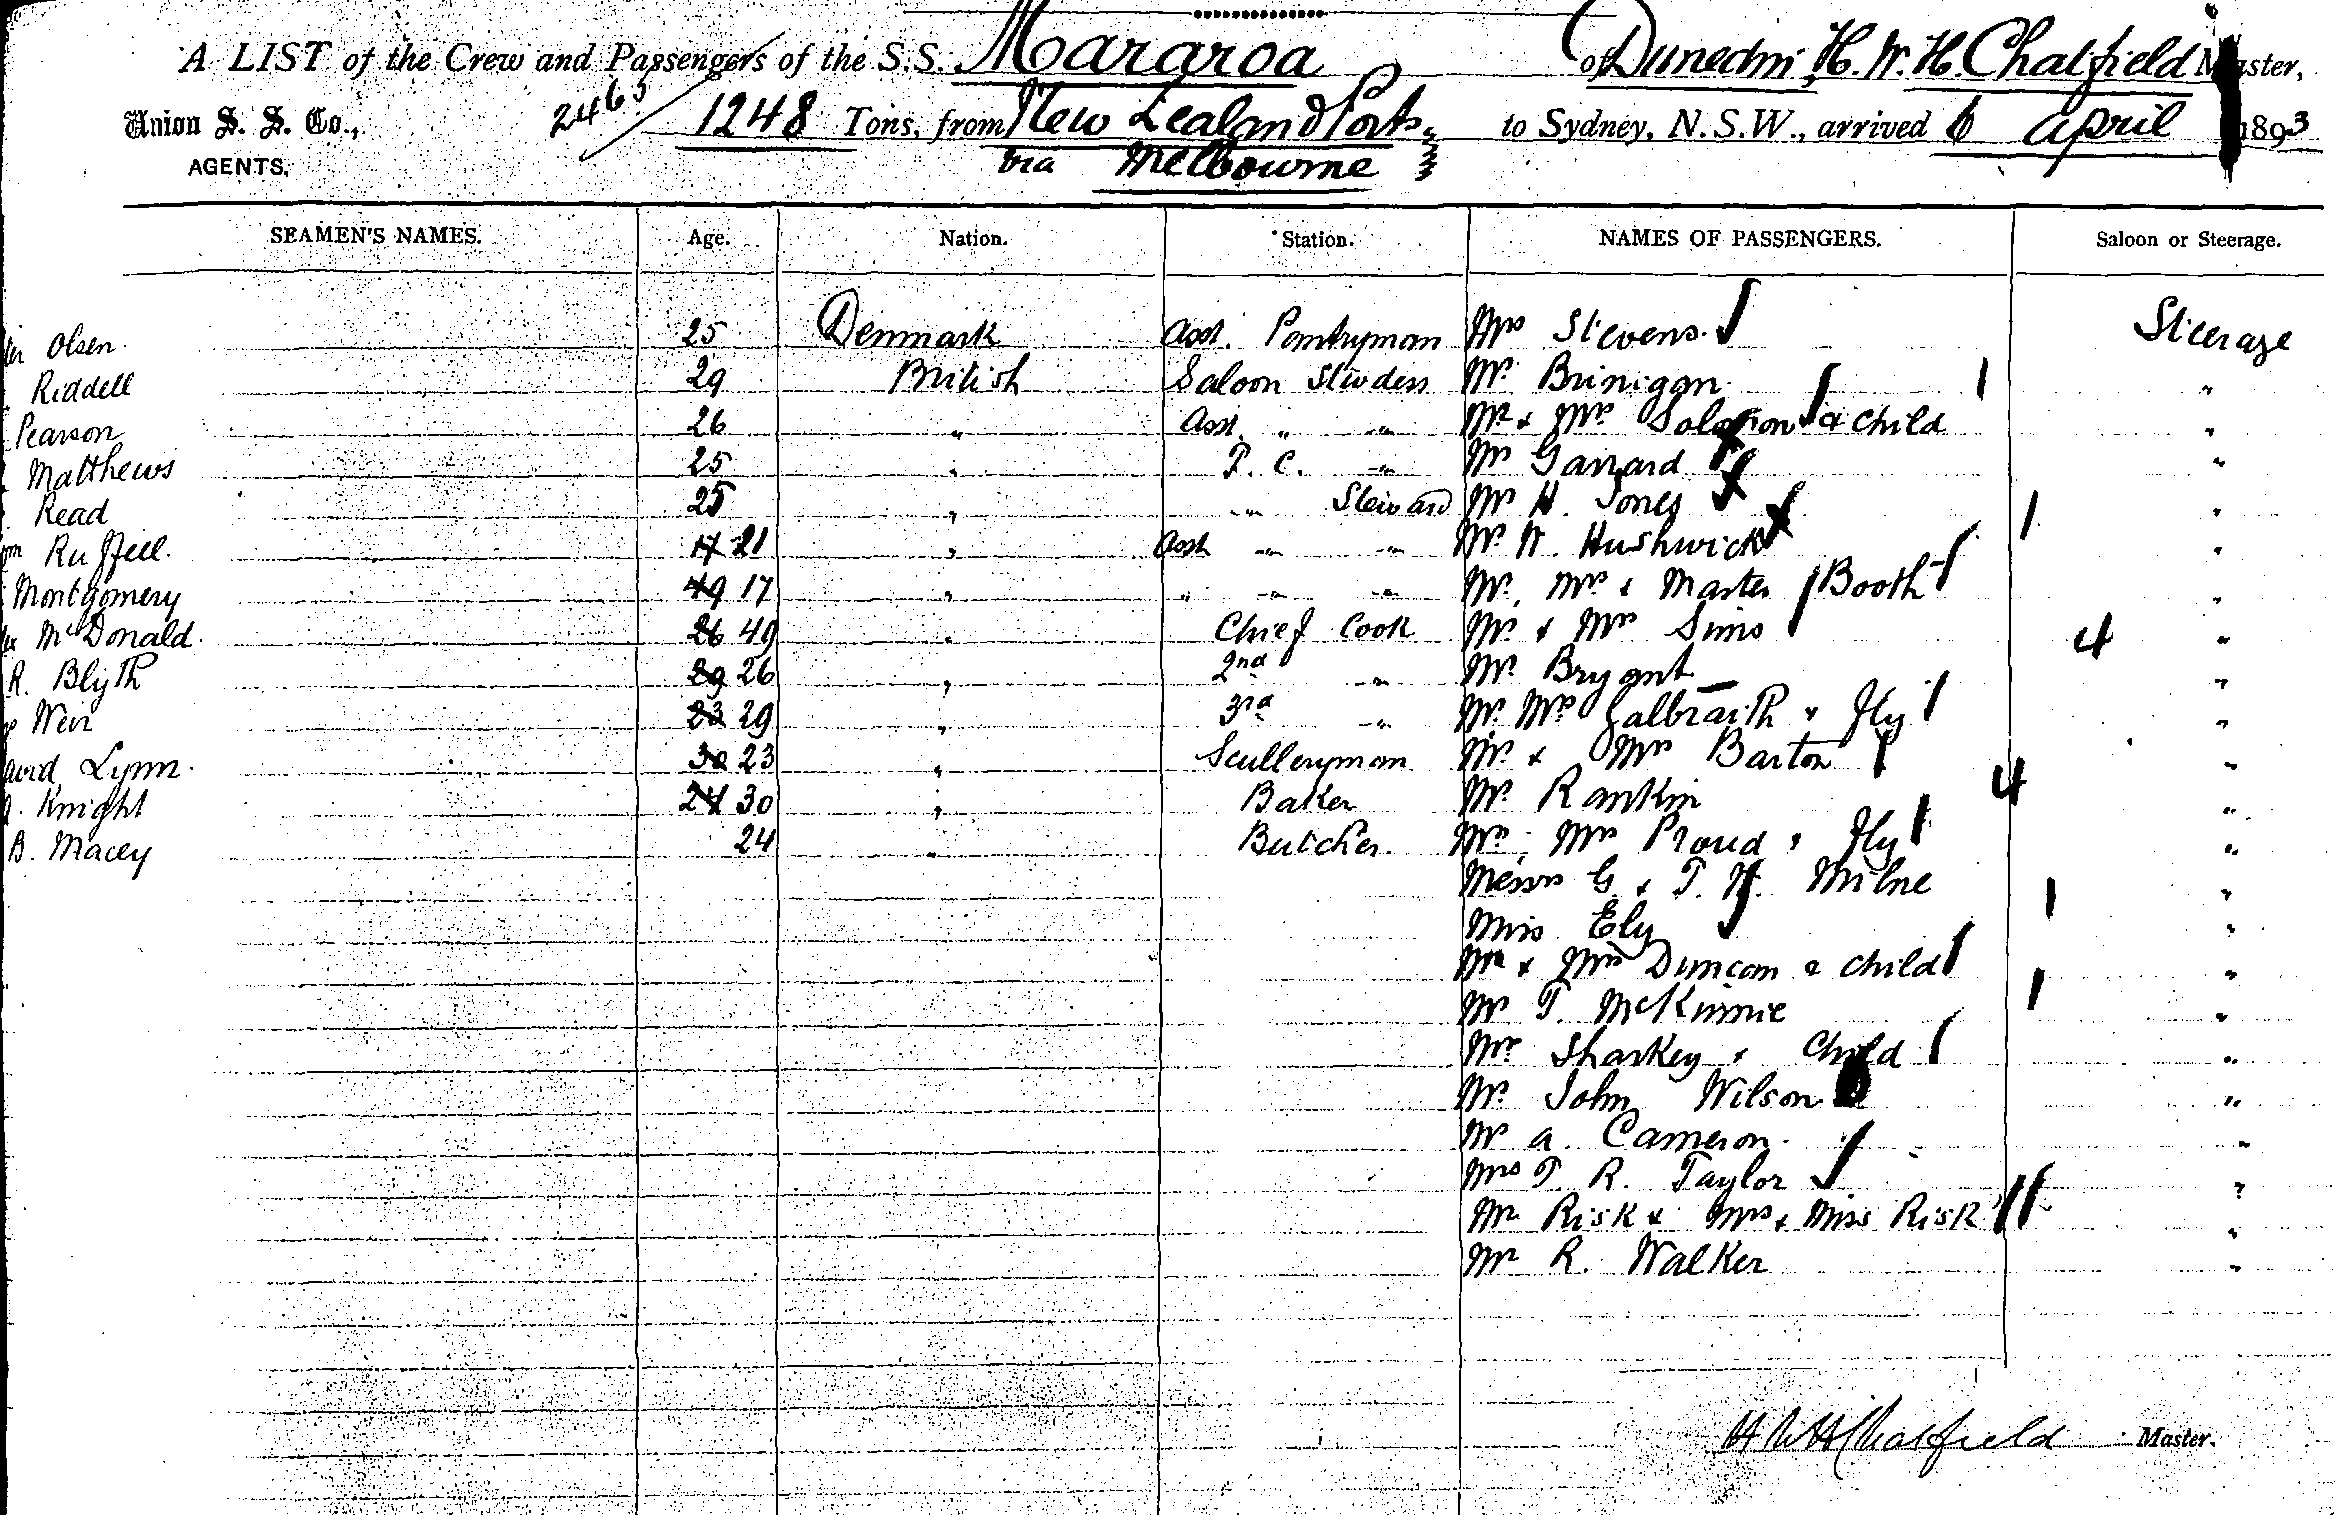 A LIST of the Crew and Passengers of the S.S. Mararoa of Dunedin, H. W. H. Chatfield Master,
Union S. S. Co., 2465 1248 Tons, from New Zealand Ports to Sydney, N.S.W., arrived 6 April 1893
AGENTS. via Melbourne
SEAMEN'S NAMES. Age. Nation. Station. NAMES OF PASSENGERS. Saloon or Steerage.
Olsen 25 Denmark Asst. Pantryman Mrs Stevens Steerage
Riddell 29 British Saloon Stwdess Mr Brinigan 1 "
Pearson 26 " Asst. " " Mr & Mrs Solomon & Child "
Matthews 25 " F. C. " Mr Garrard "
Read 25 " " Steward Mr H. Jones 1 "
Ruffell 17 21 " Asst " " Mr W. Hushwick "
Montgomery 49 17 " " " " Mr, Mrs & Master Booth "
McDonald 26 49 " Chief Cook Mr & Mrs Sims 4 "
R. Blyth 29 26 " 2nd " Mr Bryant "
Weir 23 29 " 3rd " Mr Mrs Galbraith & Fly "
David Lynn 30 23 " Sculleryman Mr & Mrs Barton "
Knight 24 30 " Baker Mr Rankin 4 "
B. Macey 24 " Butcher. Mr, Mrs Proud & Fly "
Messrs G & T. H. Milne 1 "
Miss Ely "
Mr & Mrs Duncan & child "
Mr T. McKinnie 1 "
Mr Sharkey & Child "
Mr John Wilson "
Mr A. Cameron "
Mrs T. R. Taylor "
Mr Risk & Mrs & Miss Risk "
Mr R. Walker "
H W H Chatfield Master.